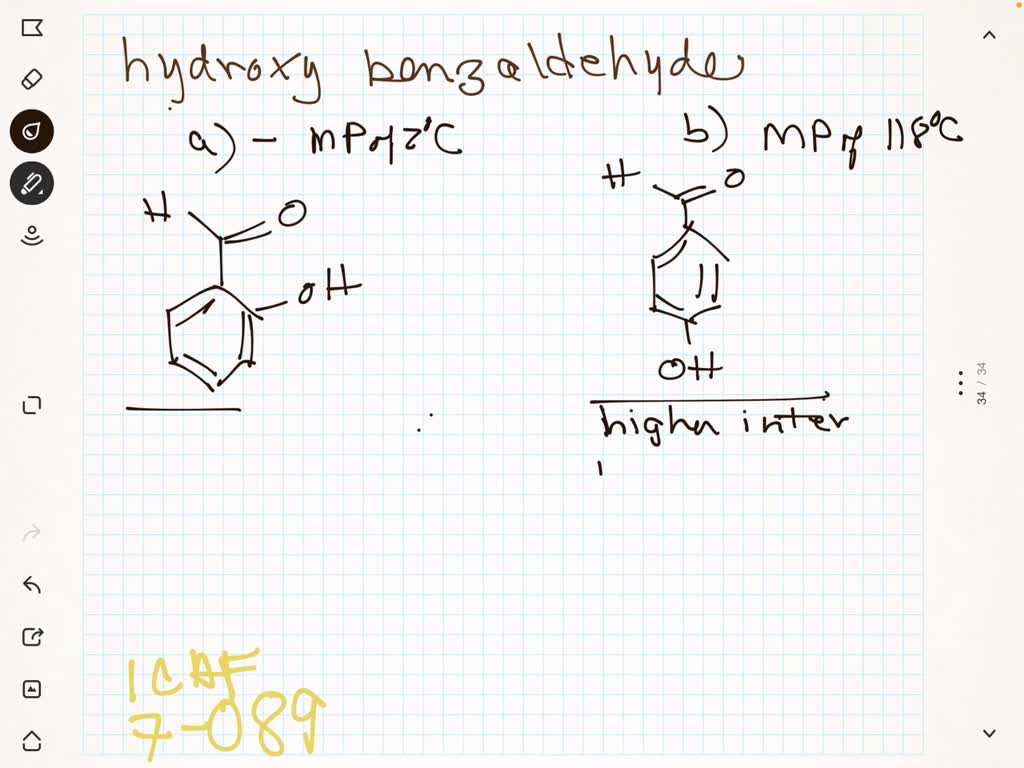 hydroxy benzaldehyde
a) - MP of 2°C
b) MP of 118°C
H
O
OH
H
O
OH
higher inter
1CAF
7-089
34 / 34